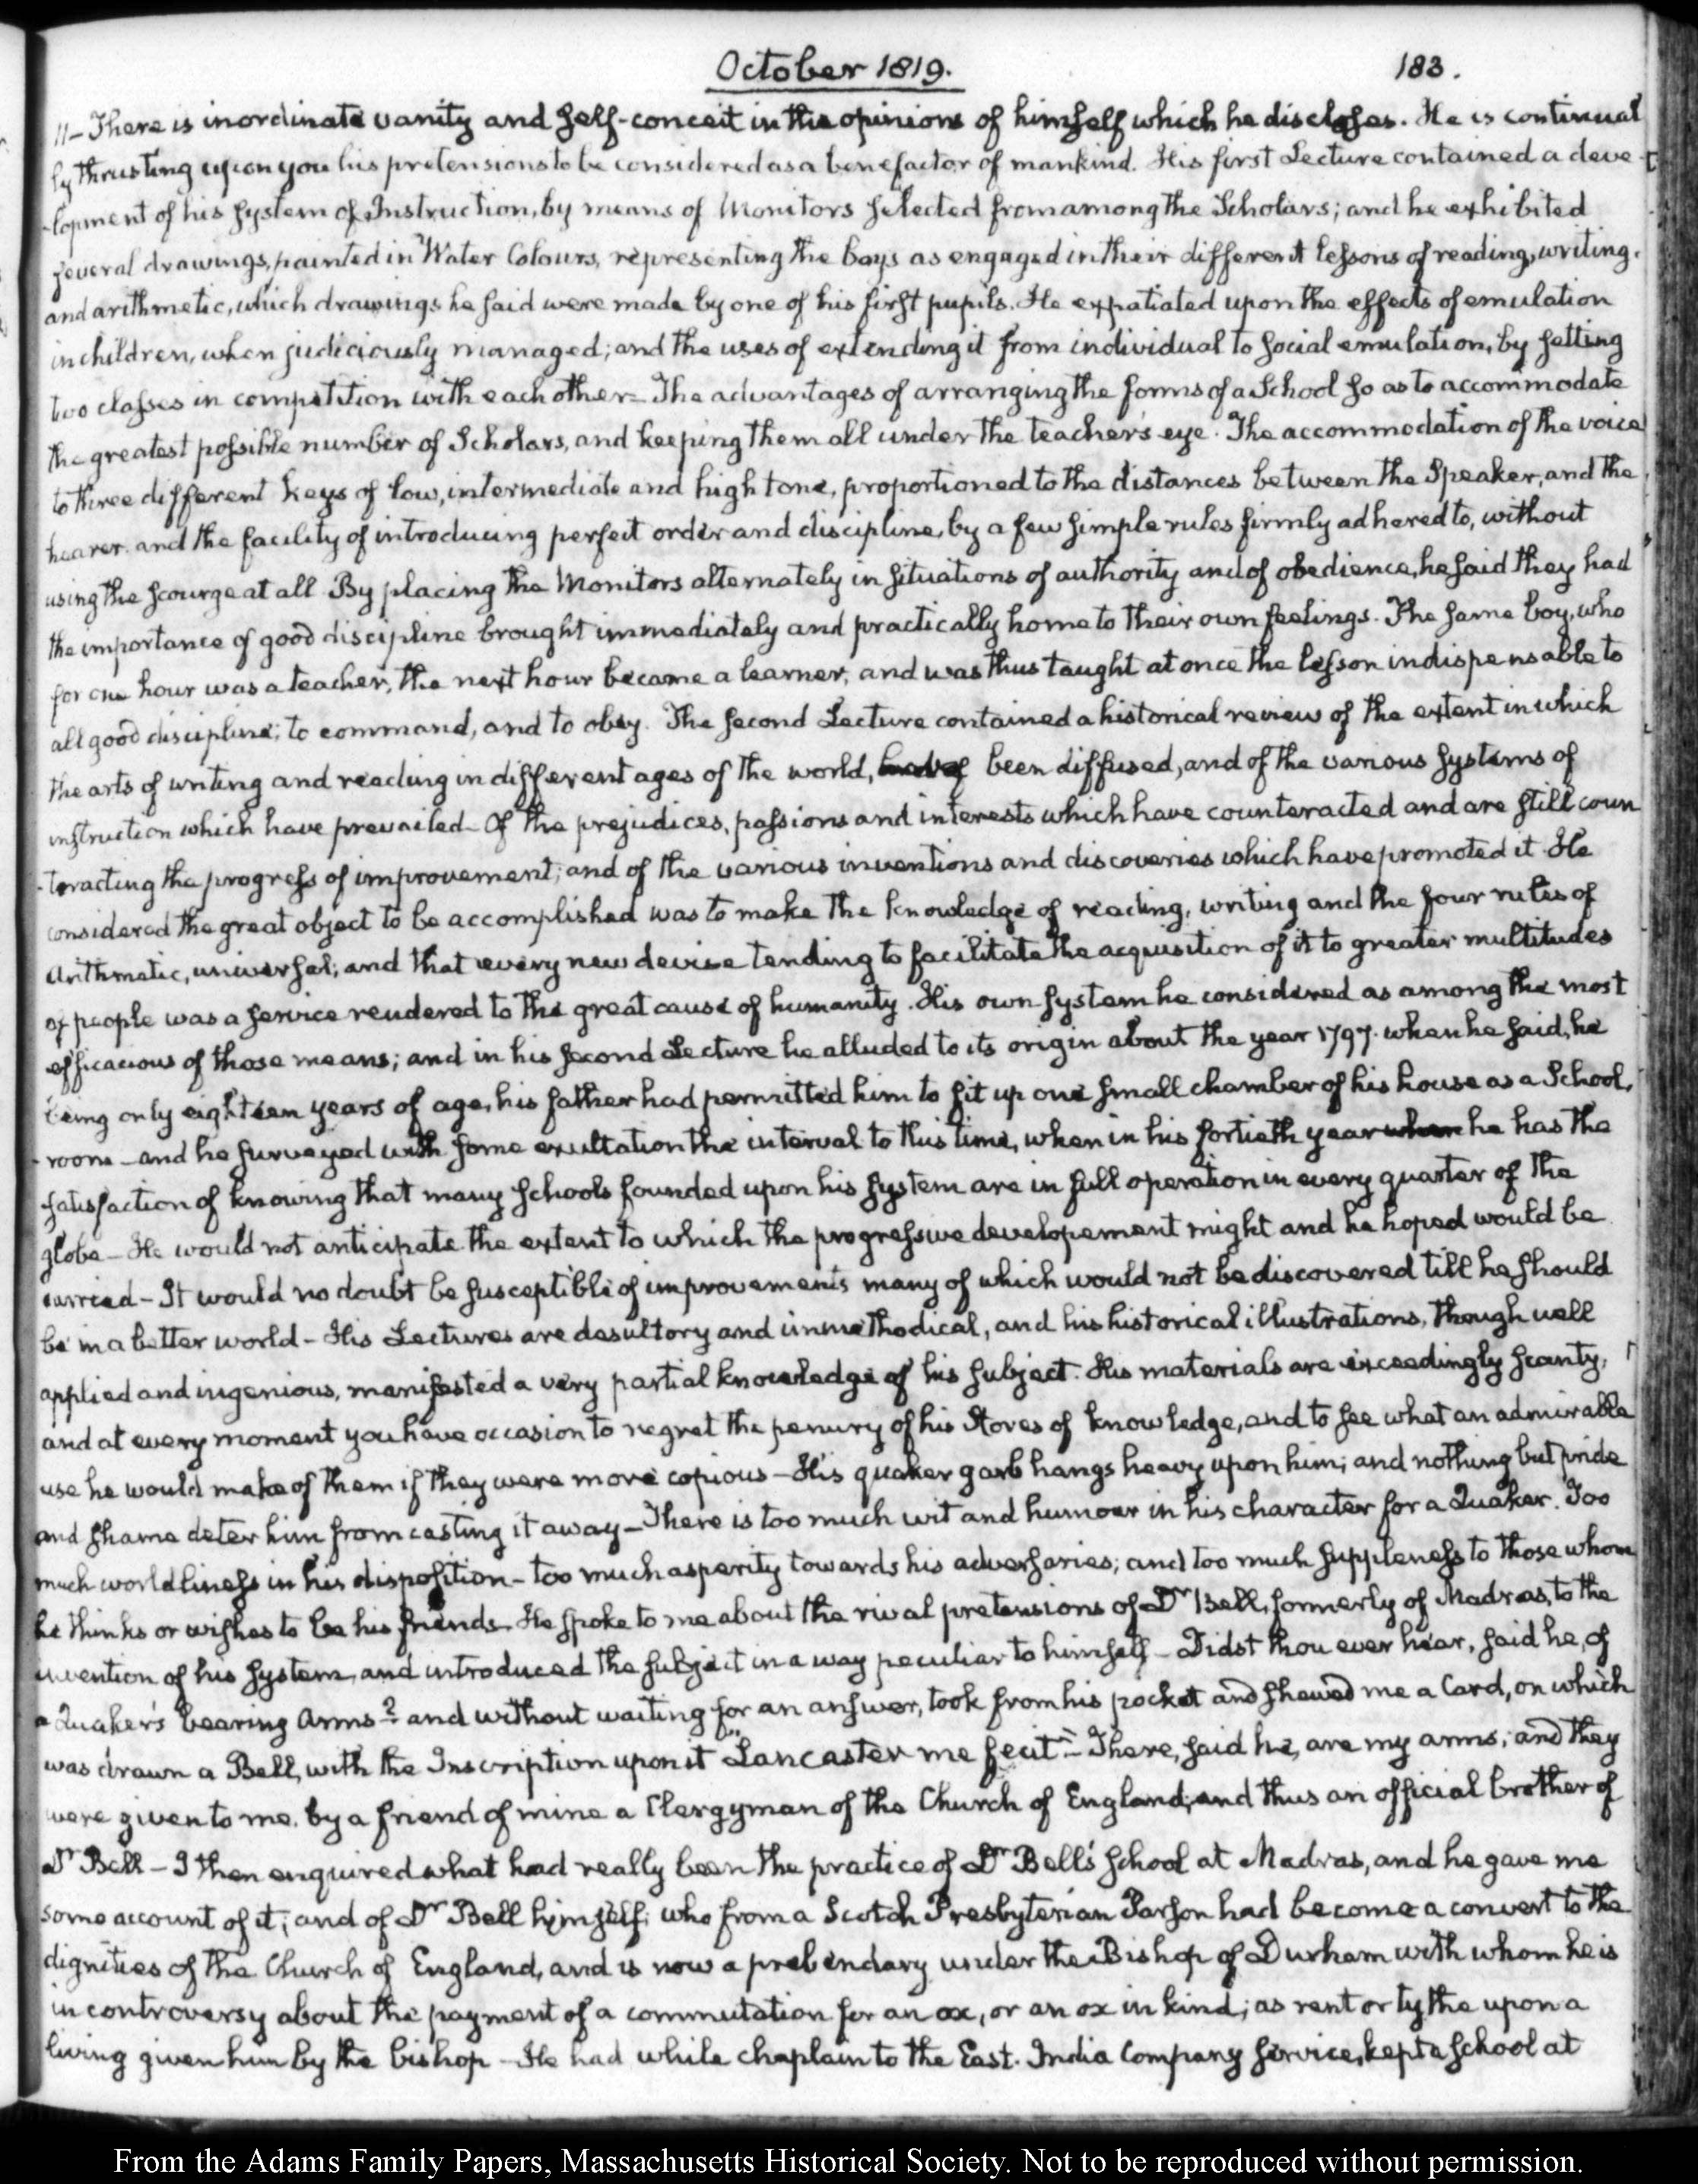 October 1819.
183.
11 - There is inordinate vanity and self-conceit in the opinions of himself which he discloses. He is continual
ly thrusting upon you his pretensions to be considered as a benefactor of mankind. His first Lecture contained a deve-
-lopment of his System of Instruction, by means of Monitors selected from among the Scholars; and he exhibited
several drawings, painted in Water Colours, representing the boys as engaged in their different lessons of reading, writing,
and arithmetic, which drawings he said were made by one of his first pupils. He expatiated upon the effects of emulation
in children, when judiciously managed; and the uses of extending it from individual to social emulation, by setting
two classes in competition with each other - The advantages of arranging the forms of a School so as to accommodate
the greatest possible number of Scholars, and keeping them all under the teacher's eye. The accommodation of the voice
to three different keys of low, intermediate and high tone, proportioned to the distances between the Speaker, and the
hearer. and the facility of introducing perfect order and discipline, by a few simple rules firmly adhered to, without
using the scourge at all. By placing the Monitors alternately in situations of authority and of obedience, he said they had
the importance of good discipline brought immediately and practically home to their own feelings. The same boy, who
for one hour was a teacher, the next hour became a learner, and was thus taught at once the lesson indispensable to
all good discipline; to command, and to obey. The second Lecture contained a historical review of the extent in which
the arts of writing and reading in different ages of the world, been diffused, and of the various systems of
instruction which have prevailed - Of the prejudices, passions and interests which have counteracted and are still coun
-teracting the progress of improvement; and of the various inventions and discoveries which have promoted it. He
considered the great object to be accomplished was to make the knowledge of reading, writing and the four rules of
Arithmatic, universal; and that every new device tending to facilitate the acquisition of it to greater multitudes
of people was a service rendered to the great cause of humanity. His own system he considered as among the most
efficacious of those means; and in his second Lecture he alluded to its origin about the year 1797. when he said, he
being only eighteen years of age, his father had permitted him to fit up one small chamber of his house as a School,
-room - and he surveyed with some exultation the interval to this time, when in his fortieth year when he has the
satisfaction of knowing that many schools founded upon his system are in full operation in every quarter of the
globe - He would not anticipate the extent to which the progressive developement might and he hoped would be
carried - It would no doubt be susceptible of improvements many of which would not be discovered till he should
be in a better world - His Lectures are desultory and unmethodical, and his historical illustrations, though well
applied and ingenious, manifested a very partial knowledge of his subject. His materials are exceedingly scanty,
and at every moment you have occasion to regret the penury of his Stores of knowledge, and to see what an admirable
use he would make of them if they were more copious - His quaker garb hangs heavy upon him; and nothing but pride
and shame deter him from casting it away - There is too much wit and humour in his character for a Quaker. Too
much worldliness in his disposition - too much asperity towards his adversaries; and too much suppleness to those whom
he thinks or wishes to be his friends. He spoke to me about the rival pretensions of Dr Bell, formerly of Madras, to the
invention of his system, and introduced the subject in a way peculiar to himself - Didst thou ever hear, said he, of
a Quaker's bearing Arms? and without waiting for an answer, took from his pocket and shewed me a Card, on which
was drawn a Bell, with the Inscription upon it "Lancaster me fecit" - There, said he, are my arms; and they
were given to me, by a friend of mine a Clergyman of the Church of England; and thus an official brother of
Dr Bell - I then enquired what had really been the practice of Dr Bell's school at Madras, and he gave me
some account of it; and of Dr Bell himself; who from a Scotch Presbyterian Parson had become a convert to the
dignities of the Church of England, and is now a prebendary under the Bishop of Durham with whom he is
in controversy about the payment of a commutation for an ox, or an ox in kind; as rent or tythe upon a
living given him by the bishop - He had while chaplain to the East-India Company service, kept a school at
From the Adams Family Papers, Massachusetts Historical Society. Not to be reproduced without permission.